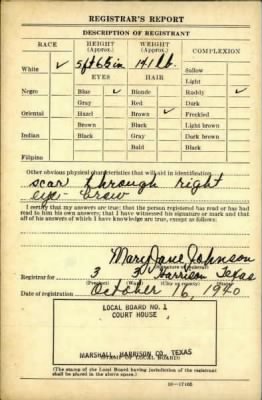 REGISTRAR'S REPORT
DESCRIPTION OF REGISTRANT
RACE HEIGHT (Approx.) WEIGHT (Approx.) COMPLEXION
White ✓ 5 ft 6½ in 141 lb. Sallow
EYES HAIR Light
Negro Blue ✓ Blonde Ruddy ✓
Gray Red Dark
Oriental Hazel Brown ✓ Freckled
Brown Black Light brown
Indian Black Gray Dark brown
Bald Black
Filipino
Other obvious physical characteristics that will aid in identification
scar through right
eye-brow
I certify that my answers are true; that the person registered has read or has had
read to him his own answers; that I have witnessed his signature or mark and that
all of his answers of which I have knowledge are true, except as follows:
Mary Jane Johnson
(Signature of registrar)
Registrar for 3 3 Harrison Texas
(Precinct) (Ward)
Date of registration October 16, 1940
LOCAL BOARD NO. 1
COURT HOUSE
MARSHALL, HARRISON CO. TEXAS
(STAMP OF LOCAL BOARD)
(The stamp of the Local Board having jurisdiction of the registrant
shall be placed in the above space.)